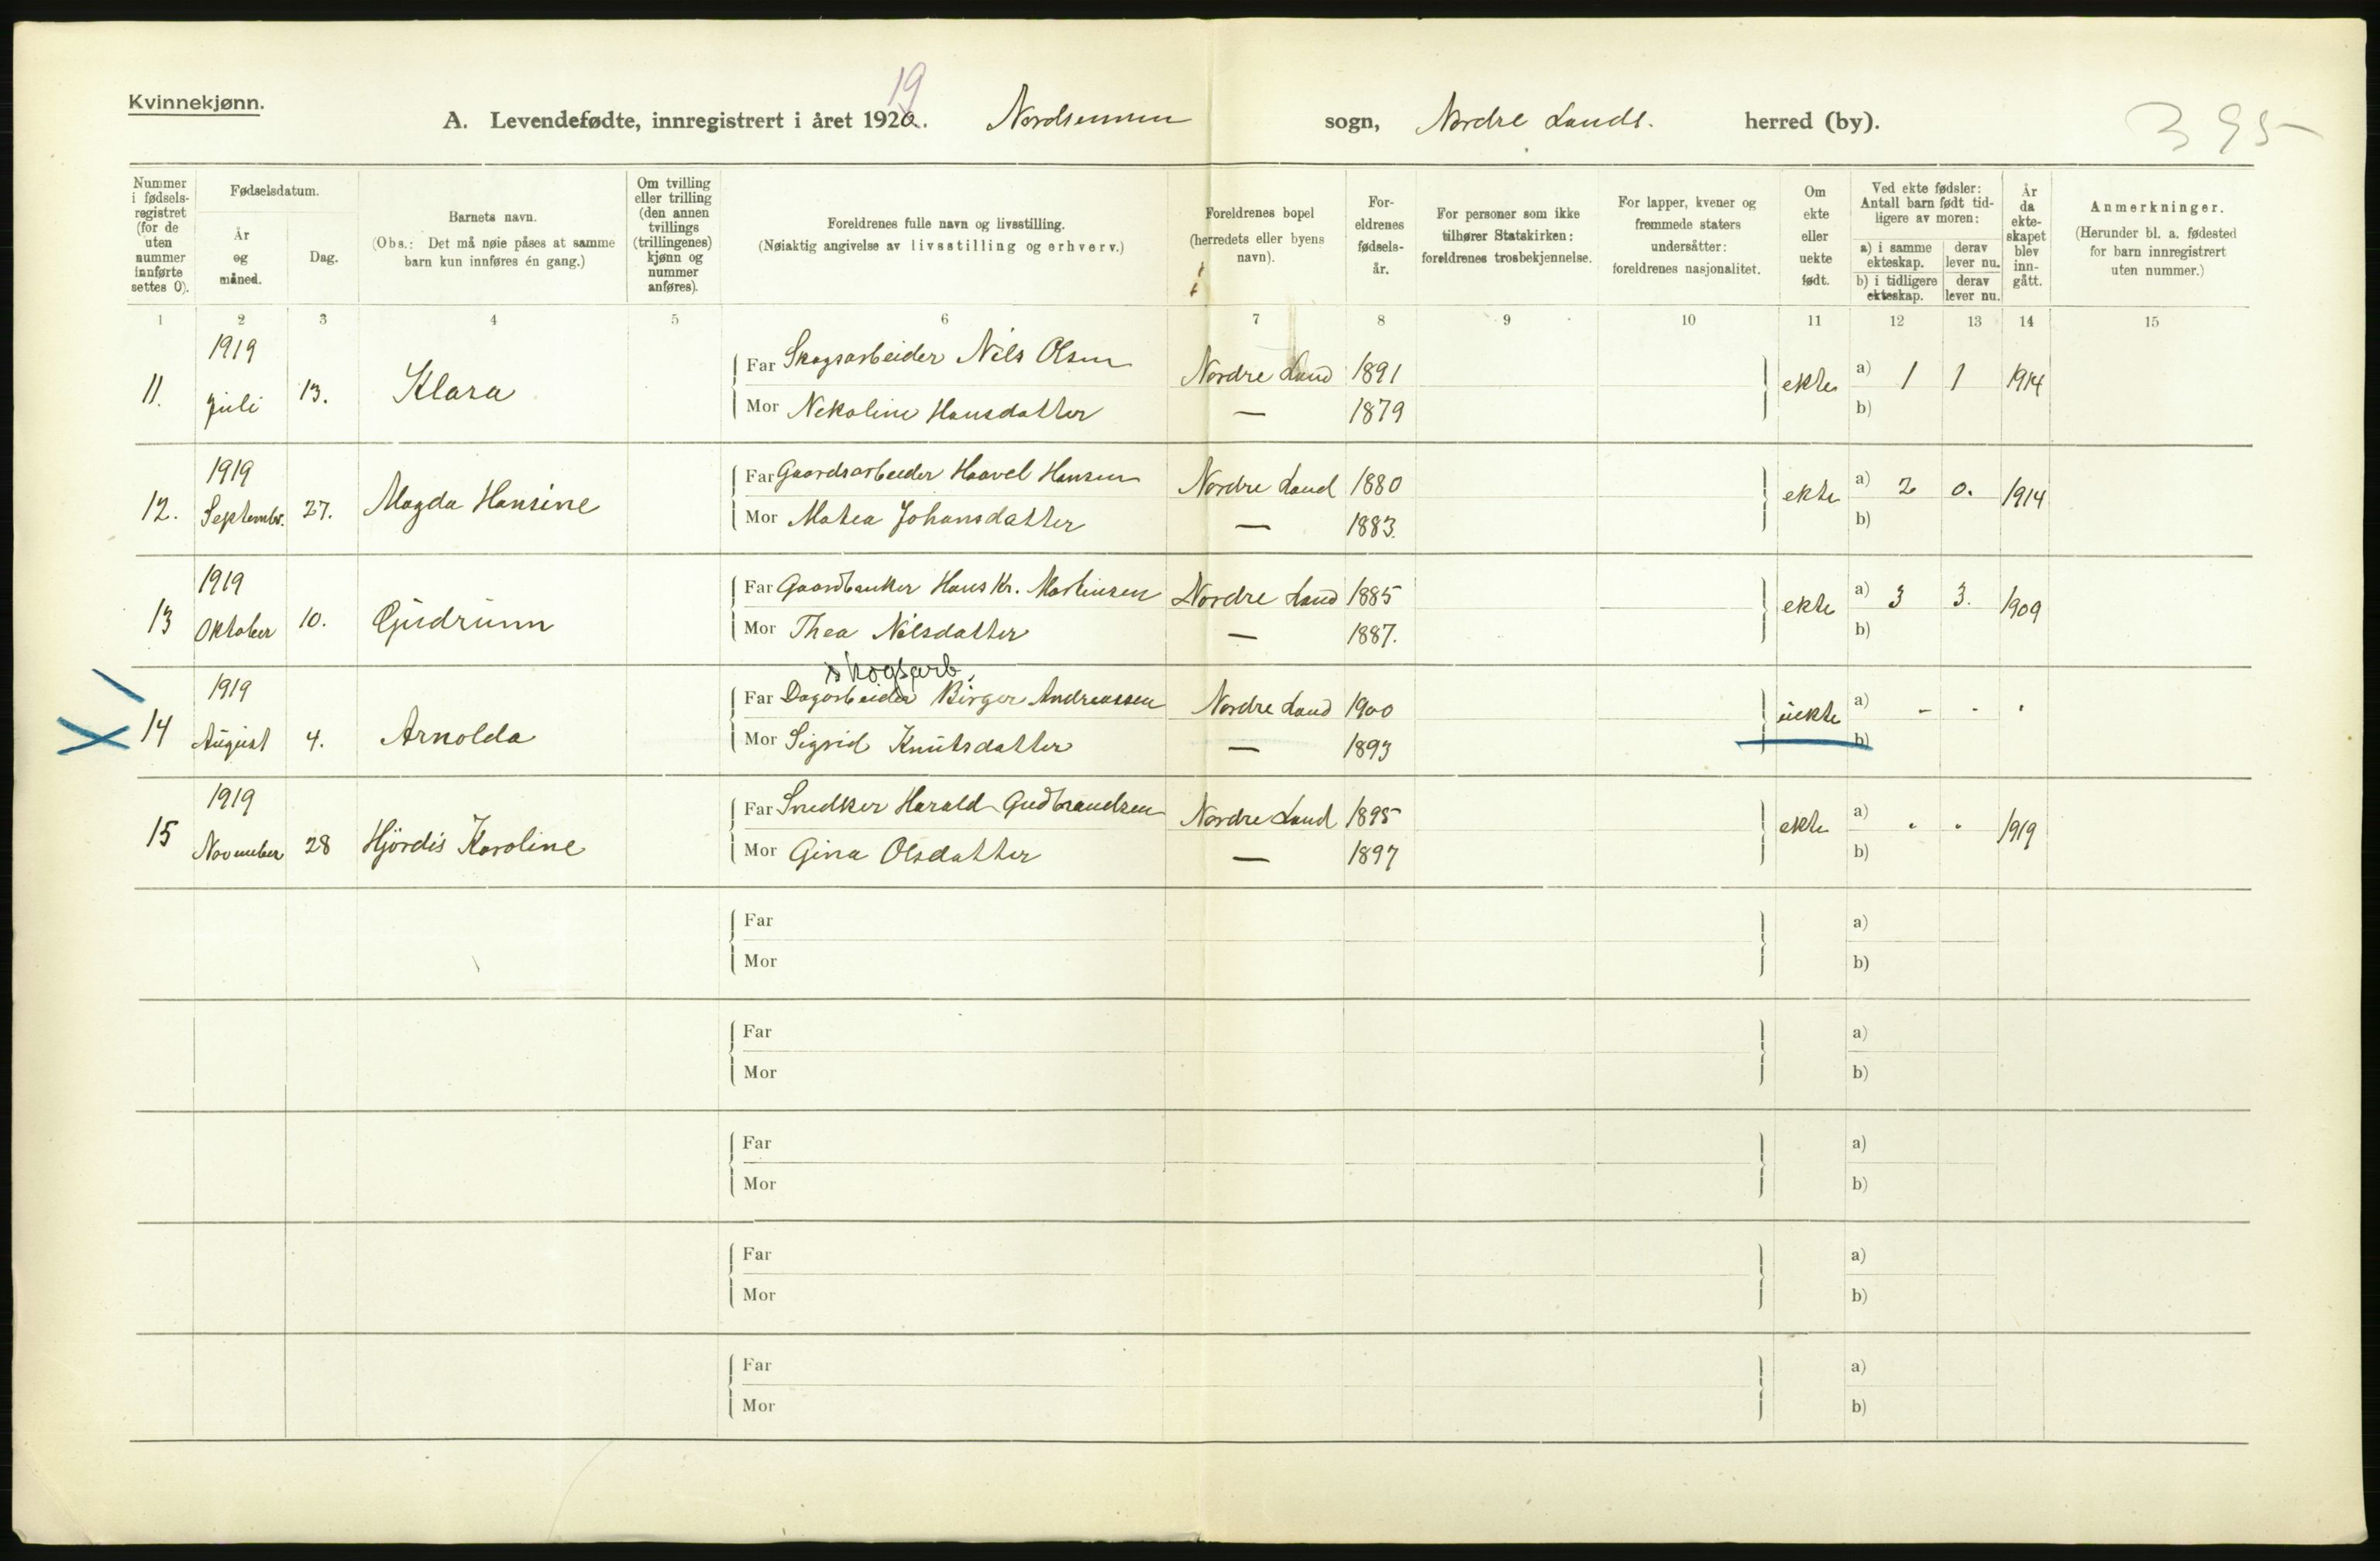 Kvinnekjønn.
19
A. Levendefødte, innregistrert i året 1920. Nordsinnen sogn, Nordre Lands. herred (by).
395
Nummer i fødsels-registret (for de uten nummer innførte settes 0).
Fødselsdatum.
År og måned.
Dag.
Barnets navn.
(Obs.: Det må nøie påses at samme barn kun innføres én gang.)
Om tvilling eller trilling (den annen tvillings (trillingenes) kjønn og nummer anføres).
Foreldrenes fulle navn og livsstilling.
(Nøiaktig angivelse av livsstilling og erhverv.)
Foreldrenes bopel (herredets eller byens navn).
For-eldrenes fødsels-år.
For personer som ikke tilhører Statskirken: foreldrenes trosbekjennelse.
For lapper, kvener og fremmede staters undersåtter: foreldrenes nasjonalitet.
Om ekte eller uekte født.
Ved ekte fødsler: Antall barn født tid-ligere av moren:
a) i samme ekteskap. derav lever nu.
b) i tidligere ekteskap. derav lever nu.
År da ekte-skapet blev inn-gått.
Anmerkninger.
(Herunder bl. a. fødested for barn innregistrert uten nummer.)
1 2 3 4 5 6 7 8 9 10 11 12 13 14 15
1919
11. juli 13. Klara
Far Skogsarbeider Nils Olsen Nordre Land 1891 ekte a) 1 1 1914
Mor Nekoline Hansdatter — 1879 b)
1919
12. Septembr. 27. Magda Hansine
Far Gaardsarbeider Haavel Hansen Nordre Land 1880 ekte a) 2 0. 1914
Mor Matea Johansdatter — 1883. b)
1919
13 Oktober 10. Gudrunn
Far Gaardbruker Hans Kr. Martinsen Nordre Land 1885 ekte a) 3 3. 1909
Mor Thea Nilsdatter — 1887. b)
skogsarb.
1919
X 14 August 4. Arnolda
Far Dagarbeider Birger Andreassen Nordre Land 1900 uekte a) - - .
Mor Sigrid Knutsdatter — 1893 b)
1919
15 November 28 Hjördis Karoline
Far Snedker Harald Gudbrandsen Nordre Land 1895 ekte a) . . 1919
Mor Gina Olsdatter — 1897 b)
Far a)
Mor b)
Far a)
Mor b)
Far a)
Mor b)
Far a)
Mor b)
Far a)
Mor b)